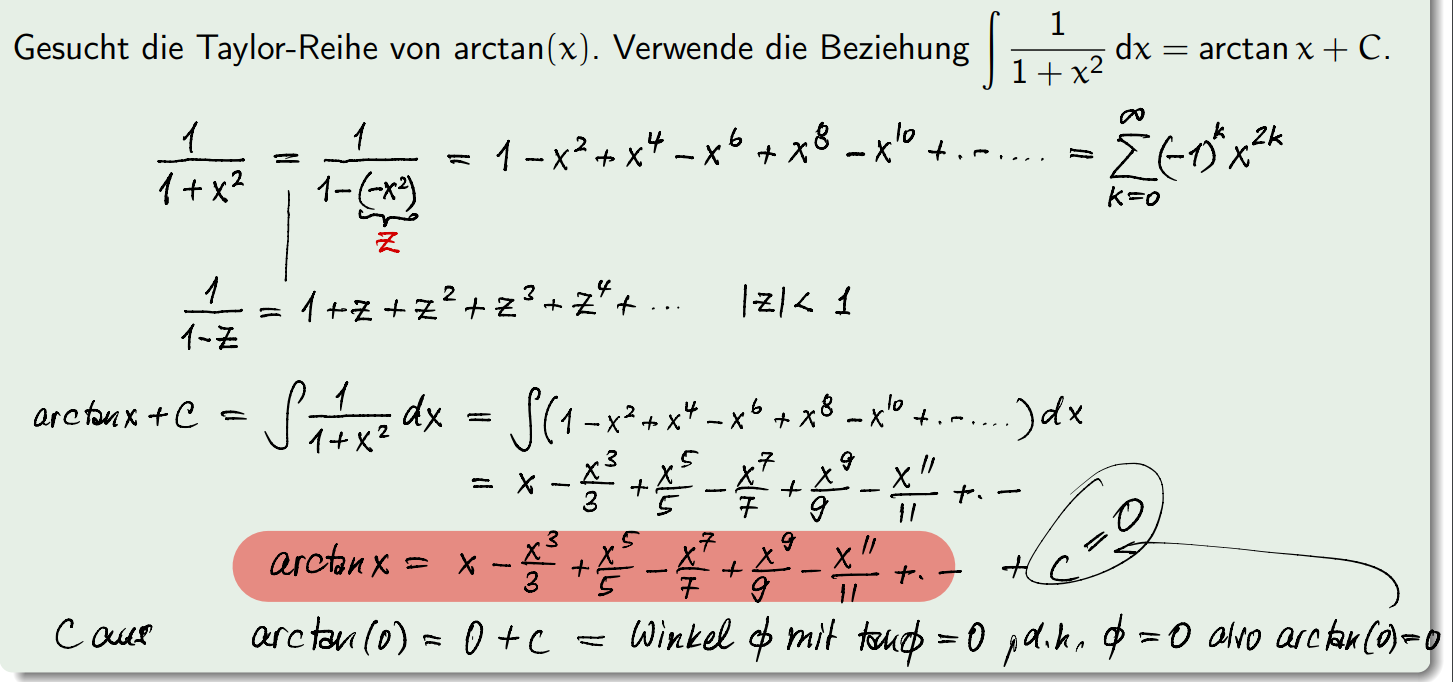 Gesucht die Taylor-Reihe von arctan(x). Verwende die Beziehung ∫ 1/(1+x²) dx = arctan x + C.
1/(1+x²) = 1/(1-(-x²)) = 1 - x² + x⁴ - x⁶ + x⁸ - x¹⁰ + . - ..... = ∑_{k=0}^{∞} (-1)^k x^{2k}
z
1/(1-z) = 1 + z + z² + z³ + z⁴ + ... |z| < 1
arctan x + C = ∫ 1/(1+x²) dx = ∫(1 - x² + x⁴ - x⁶ + x⁸ - x¹⁰ + . - ....) dx
= x - x³/3 + x⁵/5 - x⁷/7 + x⁹/9 - x¹¹/11 + . -
arctan x = x - x³/3 + x⁵/5 - x⁷/7 + x⁹/9 - x¹¹/11 + . - + C = 0
C aus arctan(0) = 0 + C = Winkel ϕ mit tanϕ = 0, d.h. ϕ = 0 also arctan(0)=0